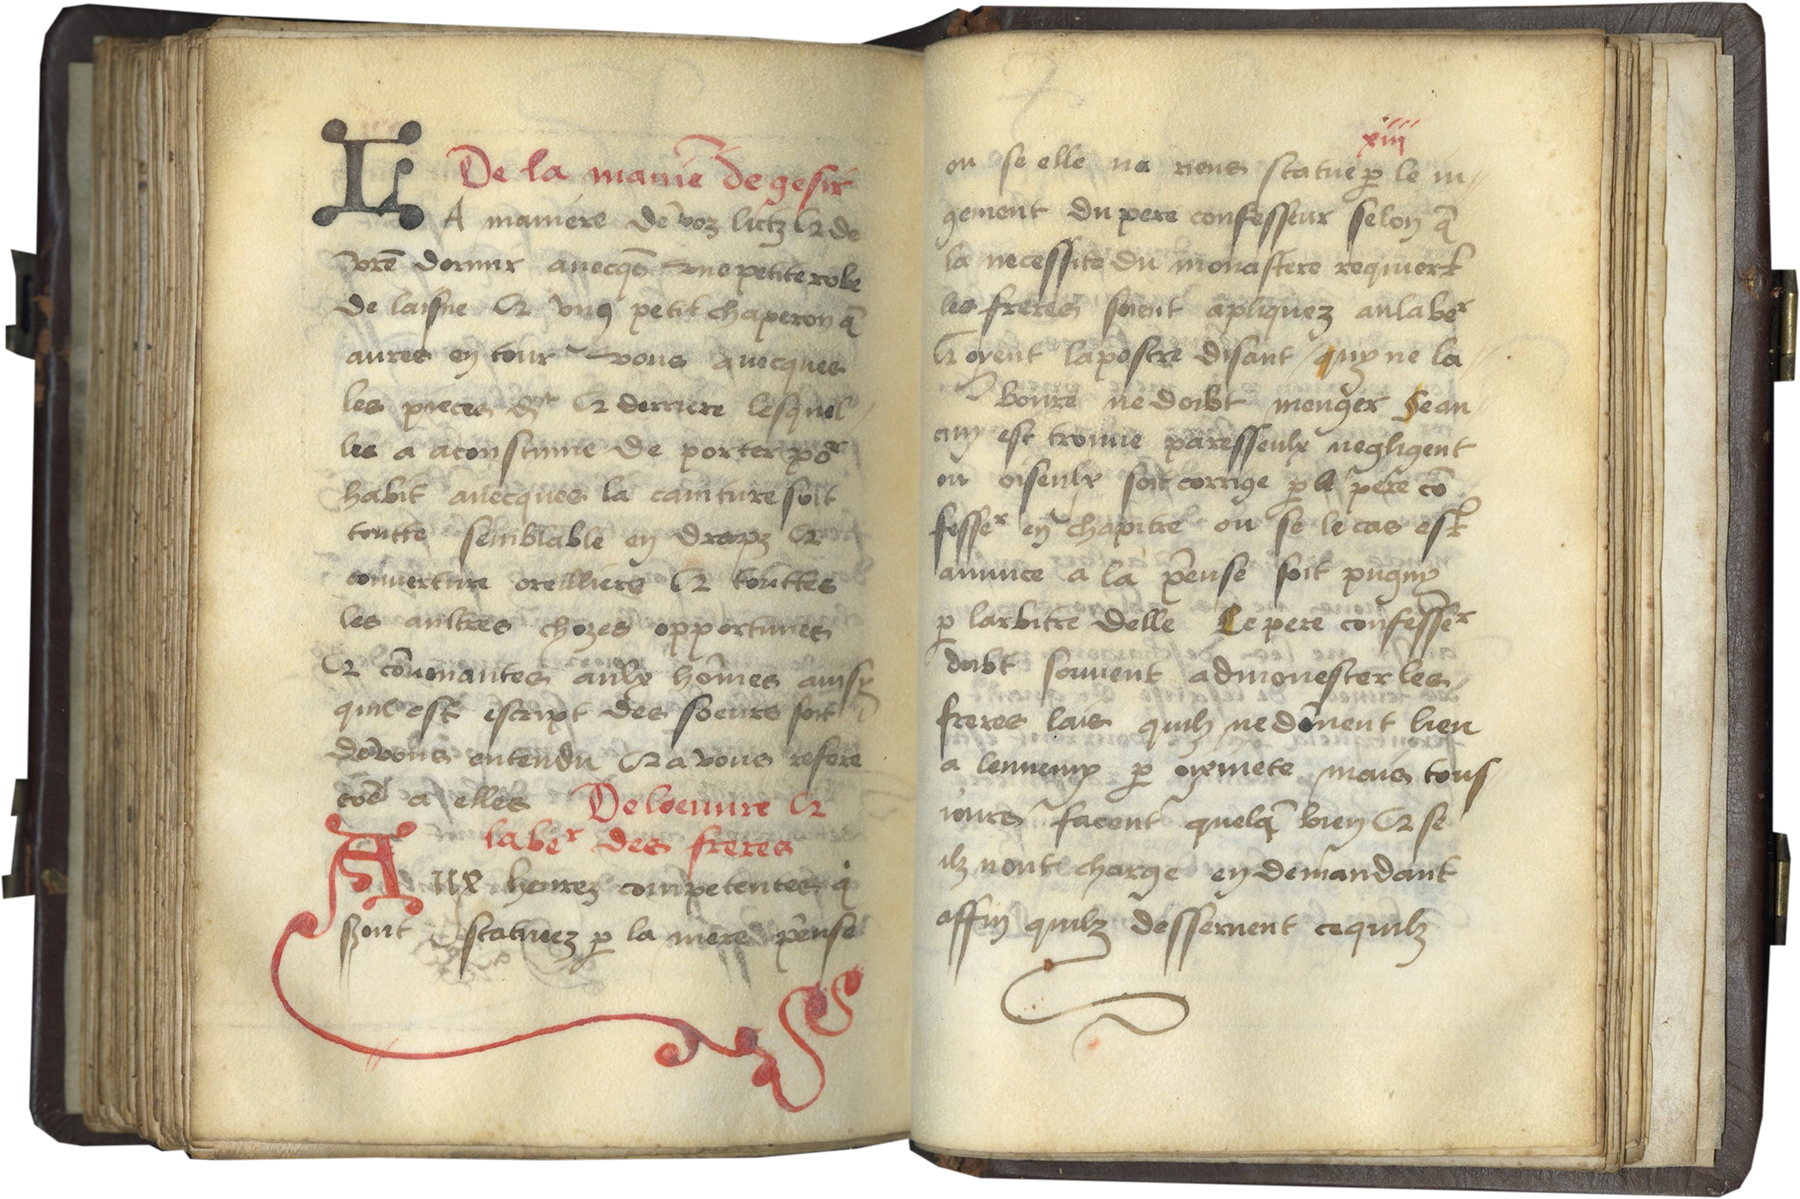 De la maniē de gesir
LA maniere de voz lictz & de
vrē dormir avecq̄s une petite robe
de laisne & ung petit chaperon q̄
aures en tour vous avecques
les pieces & derriere lesquel
les a acoustume de porter por
habit avecques la caintures soit
toutte semblable en drapz &
couverture oreilliers & touttes
les aultres chozes opportunes
& cōvenantes aulx hōmes ainsy
quil est escript des soeurs soit
de vous entendu & a vous refere
cōe a elles De loeuvre &
laber des freres
AUX heures competentes q̄
sont statuez p la mere p̄euse
xiiii
ou se elle na riens statue p le iu
gement du pere confesseur selon q̄
la necessite du monastere requiert
les freres soient apliquez au laber
& oyent lapostre disant quy ne la
boure ne doibt menger Se au
cun est trouve paresseulx negligent
ou oiseulx soit corrige p le pere cō
fesser en chapitre ou se le cas est
anunce a la p̄euse soit pugny
p larbitre delle Le pere confesser
doibt souvent admonester les
freres lais quilz ne dōnent lieu
a lennemy p oysivete mais tous
iours facent quelq̄ bien & se
ilz nont charge en demandant
affin quilz desservent ce quilz